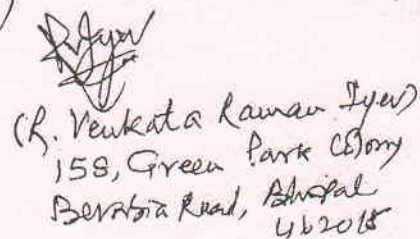 (R. Venkata Raman Iyer)
158, Green Park Colony
Berasia Road, Bhopal
462018